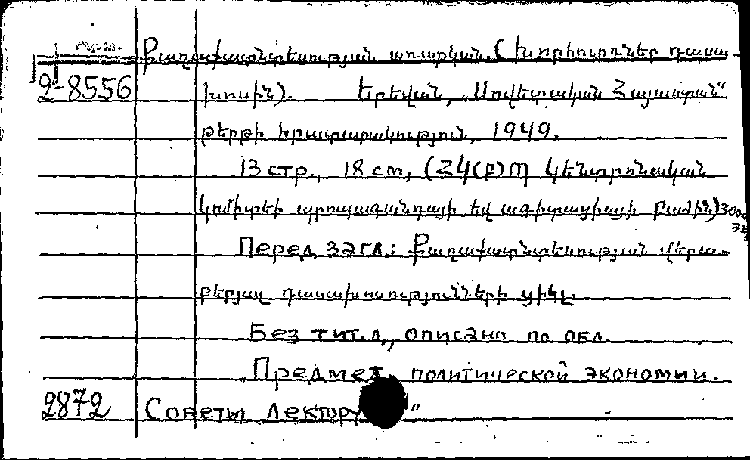 Քաղաքատնտեսության առարկան. (Խորհուրդներ դասա-
2-8556 խոսին). Երեվան, „Սովետական Հայաստան"
թերթի հրատարակություն, 1949.
13 стр., 18 см, (ՀԿ(բ)Պ Կենտրոնական
կոմիտեի պրոպագանդայի եվ ագիտացիայի բաժին) 3000
Перед загл.: Քաղաքատնտեսության վերա-
բերյալ դասախոսությունների ցիկլ.
Без тит.л., описано по обл.
„Предмет политической экономии.
2872 Советы лектору"